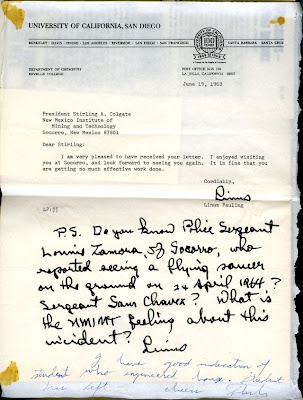 UNIVERSITY OF CALIFORNIA, SAN DIEGO
BERKELEY • DAVIS • IRVINE • LOS ANGELES • RIVERSIDE • SAN DIEGO • SAN FRANCISCO
SANTA BARBARA • SANTA CRUZ
DEPARTMENT OF CHEMISTRY
REVELLE COLLEGE
POST OFFICE BOX 109
LA JOLLA, CALIFORNIA 92037
June 19, 1968
President Stirling A. Colgate
New Mexico Institute of
Mining and Technology
Socorro, New Mexico 87801
Dear Stirling:
I am very pleased to have received your letter. I enjoyed visiting
you at Socorro, and look forward to seeing you again. It is fine that you
are getting so much effective work done.
Cordially,
Linus
Linus Pauling
LP:
P.S. Do you know Police Sergeant
Lonnie Zamora, of Socorro, who
reported seeing a flying saucer
on the ground on 24 April 1964?
Sergeant Sam Chavez? What is
the NMIMT feeling about this
incident? Linus
I have good indication of
student who engineered hoax. Student
has left. Cheers